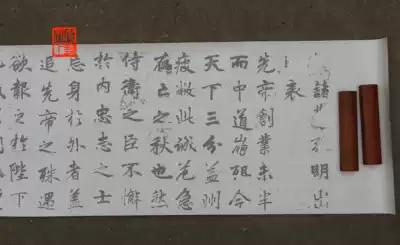 諸葛孔明出
師表
先帝創業未半
而中道崩殂今
天下三分益州
疲敝此誠危急
存亡之秋也然
侍衛之臣不懈
於內忠志之士
忘身於外者蓋
追先帝之殊遇
欲報之於陛下